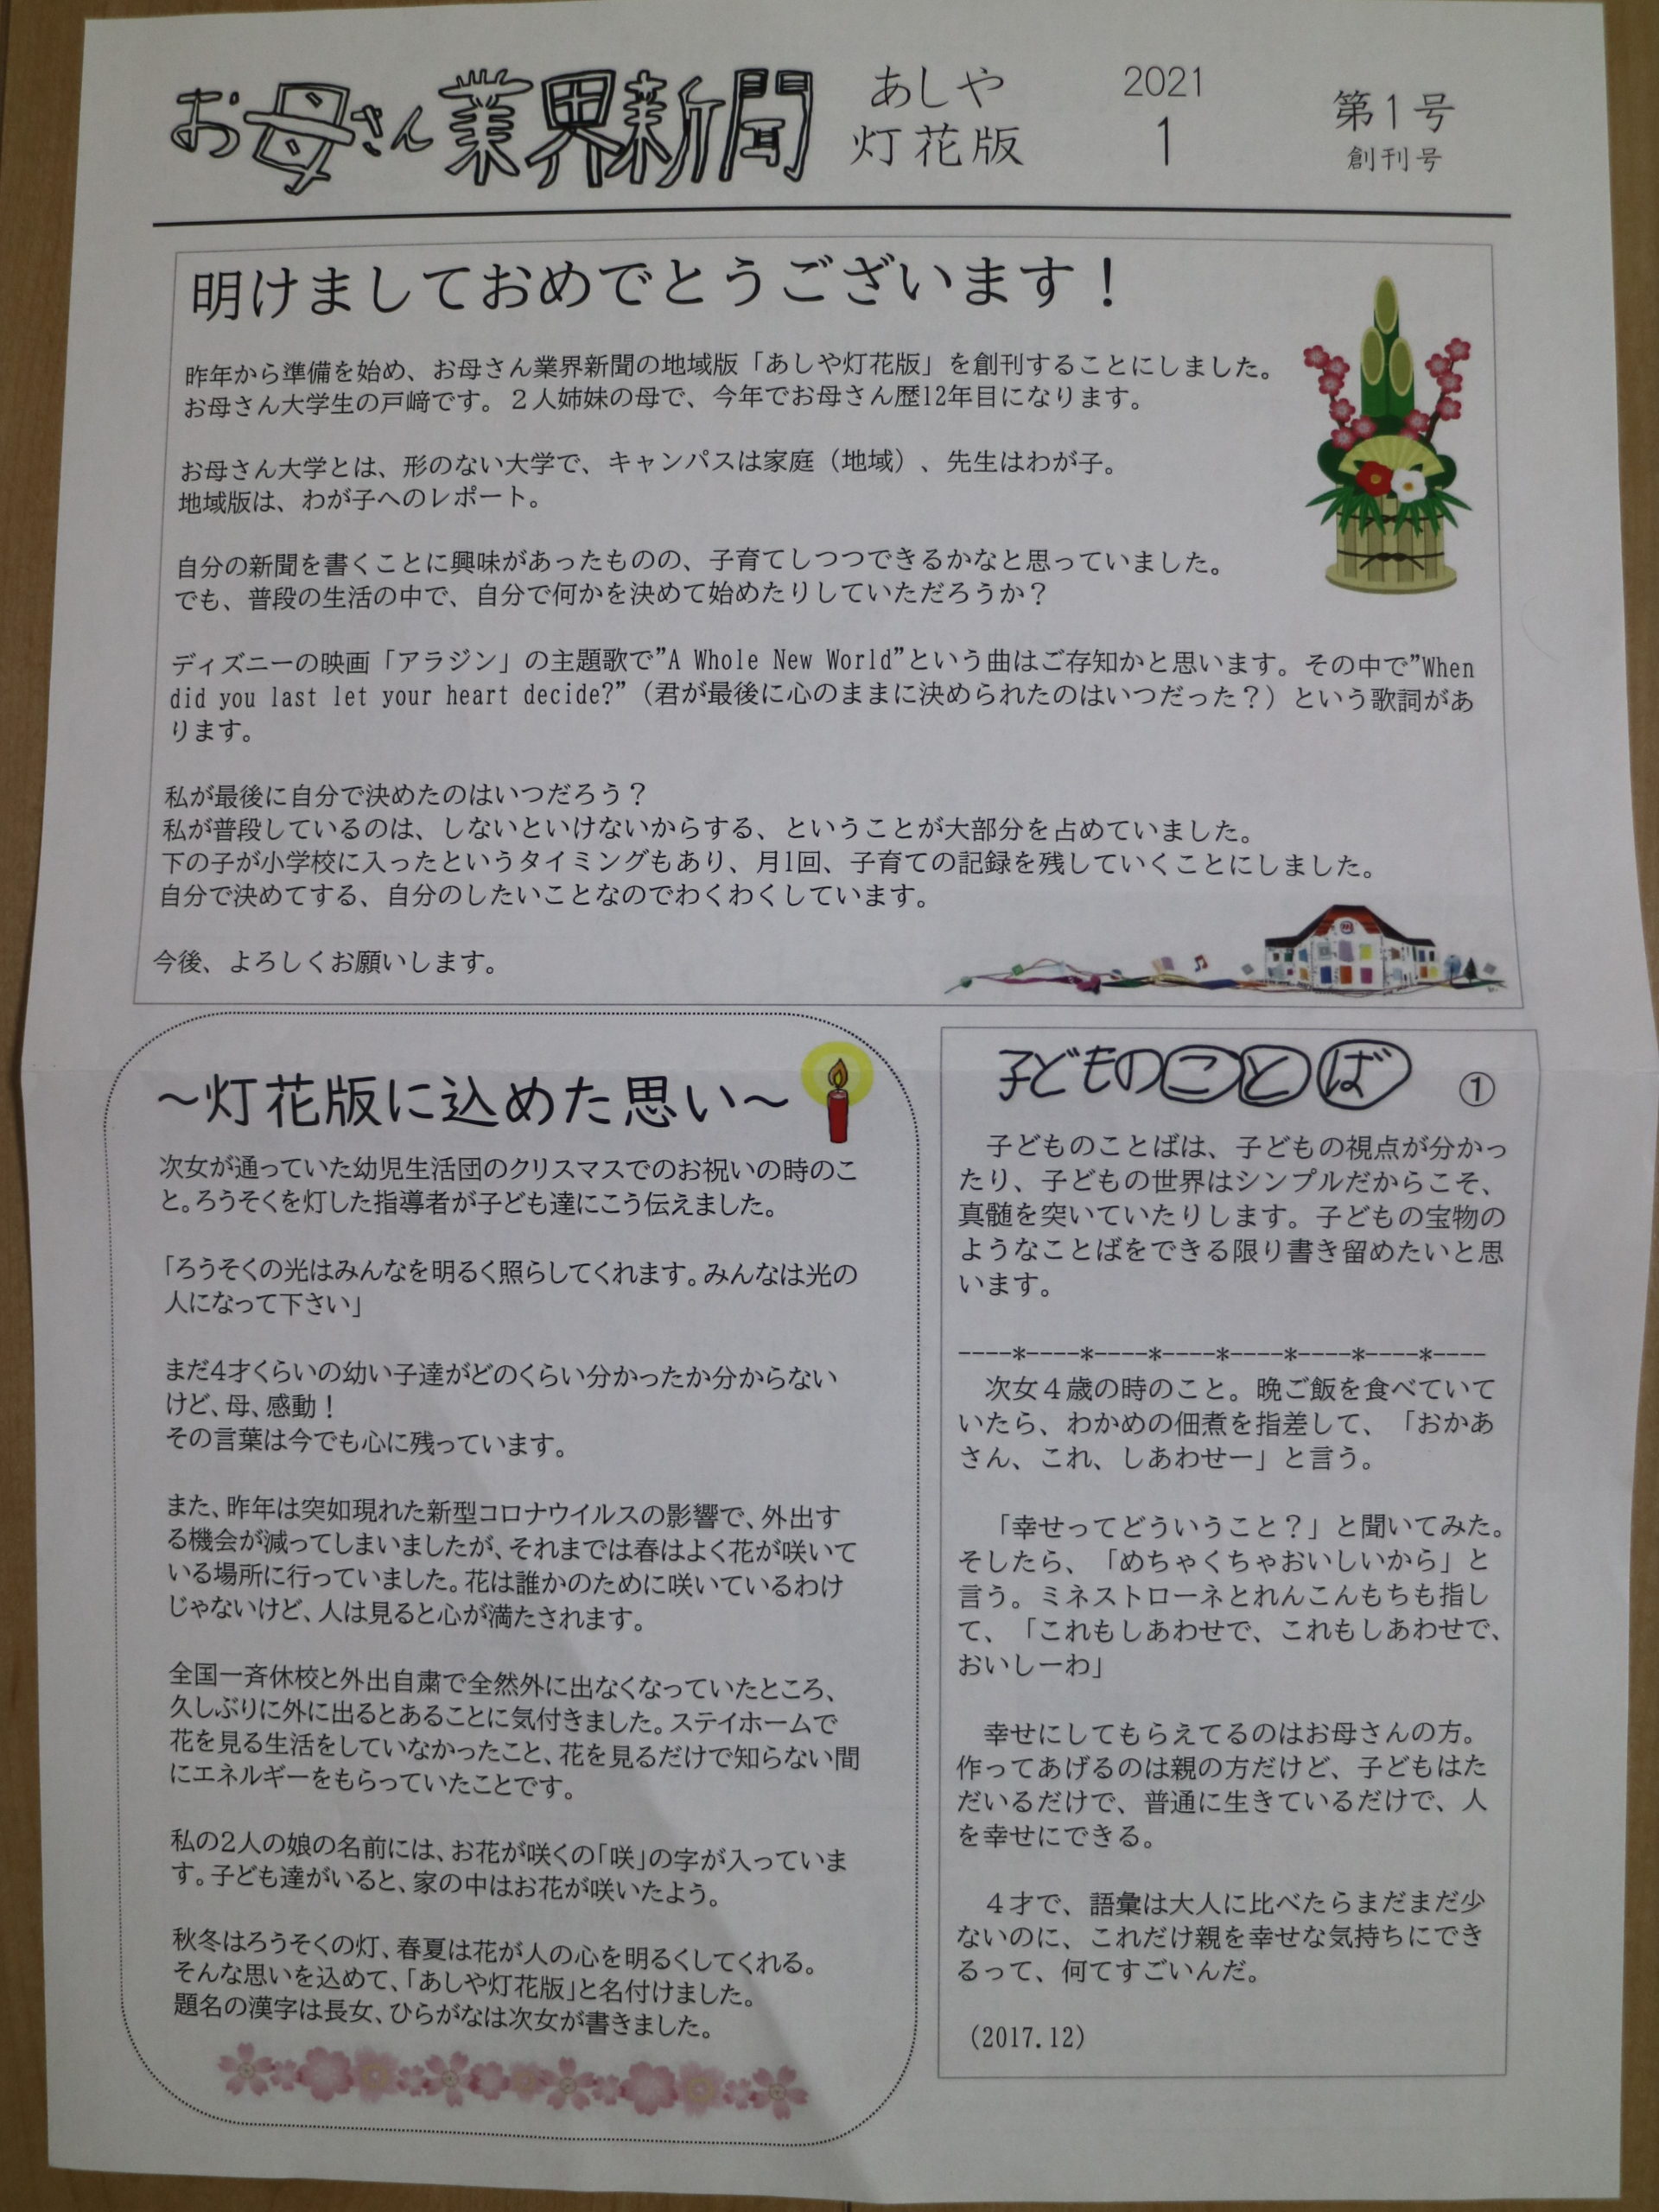 お母さん業界新聞
あしや
灯花版
2021
1
第1号
創刊号
明けましておめでとうございます！
昨年から準備を始め、お母さん業界新聞の地域版「あしや灯花版」を創刊することにしました。
お母さん大学生の戸﨑です。２人姉妹の母で、今年でお母さん歴12年目になります。
お母さん大学とは、形のない大学で、キャンパスは家庭（地域）、先生はわが子。
地域版は、わが子へのレポート。
自分の新聞を書くことに興味があったものの、子育てしつつできるかなと思っていました。
でも、普段の生活の中で、自分で何かを決めて始めたりしていただろうか？
ディズニーの映画「アラジン」の主題歌で”A Whole New World”という曲はご存知かと思います。その中で”When
did you last let your heart decide?”（君が最後に心のままに決められたのはいつだった？）という歌詞があ
ります。
私が最後に自分で決めたのはいつだろう？
私が普段しているのは、しないといけないからする、ということが大部分を占めていました。
下の子が小学校に入ったというタイミングもあり、月1回、子育ての記録を残していくことにしました。
自分で決めてする、自分のしたいことなのでわくわくしています。
今後、よろしくお願いします。
～灯花版に込めた思い～
次女が通っていた幼児生活団のクリスマスでのお祝いの時のこ
と。ろうそくを灯した指導者が子ども達にこう伝えました。
「ろうそくの光はみんなを明るく照らしてくれます。みんなは光の
人になって下さい」
まだ4才くらいの幼い子達がどのくらい分かったか分からない
けど、母、感動！
その言葉は今でも心に残っています。
また、昨年は突如現れた新型コロナウイルスの影響で、外出す
る機会が減ってしまいましたが、それまでは春はよく花が咲いて
いる場所に行っていました。花は誰かのために咲いているわけ
じゃないけど、人は見ると心が満たされます。
全国一斉休校と外出自粛で全然外に出なくなっていたところ、
久しぶりに外に出るとあることに気付きました。ステイホームで
花を見る生活をしていなかったこと、花を見るだけで知らない間
にエネルギーをもらっていたことです。
私の2人の娘の名前には、お花が咲くの「咲」の字が入っていま
す。子ども達がいると、家の中はお花が咲いたよう。
秋冬はろうそくの灯、春夏は花が人の心を明るくしてくれる。
そんな思いを込めて、「あしや灯花版」と名付けました。
題名の漢字は長女、ひらがなは次女が書きました。
子どものことば ①
子どものことばは、子どもの視点が分かっ
たり、子どもの世界はシンプルだからこそ、
真髄を突いていたりします。子どもの宝物の
ようなことばをできる限り書き留めたいと思
います。
----*----*----*----*----*----*----*----
次女４歳の時のこと。晩ご飯を食べていて
いたら、わかめの佃煮を指差して、「おかあ
さん、これ、しあわせー」と言う。
「幸せってどういうこと？」と聞いてみた。
そしたら、「めちゃくちゃおいしいから」と
言う。ミネストローネとれんこんもちも指し
て、「これもしあわせで、これもしあわせで、
おいしーわ」
幸せにしてもらえてるのはお母さんの方。
作ってあげるのは親の方だけど、子どもはた
だいるだけで、普通に生きているだけで、人
を幸せにできる。
４才で、語彙は大人に比べたらまだまだ少
ないのに、これだけ親を幸せな気持ちにでき
るって、何てすごいんだ。
(2017.12)